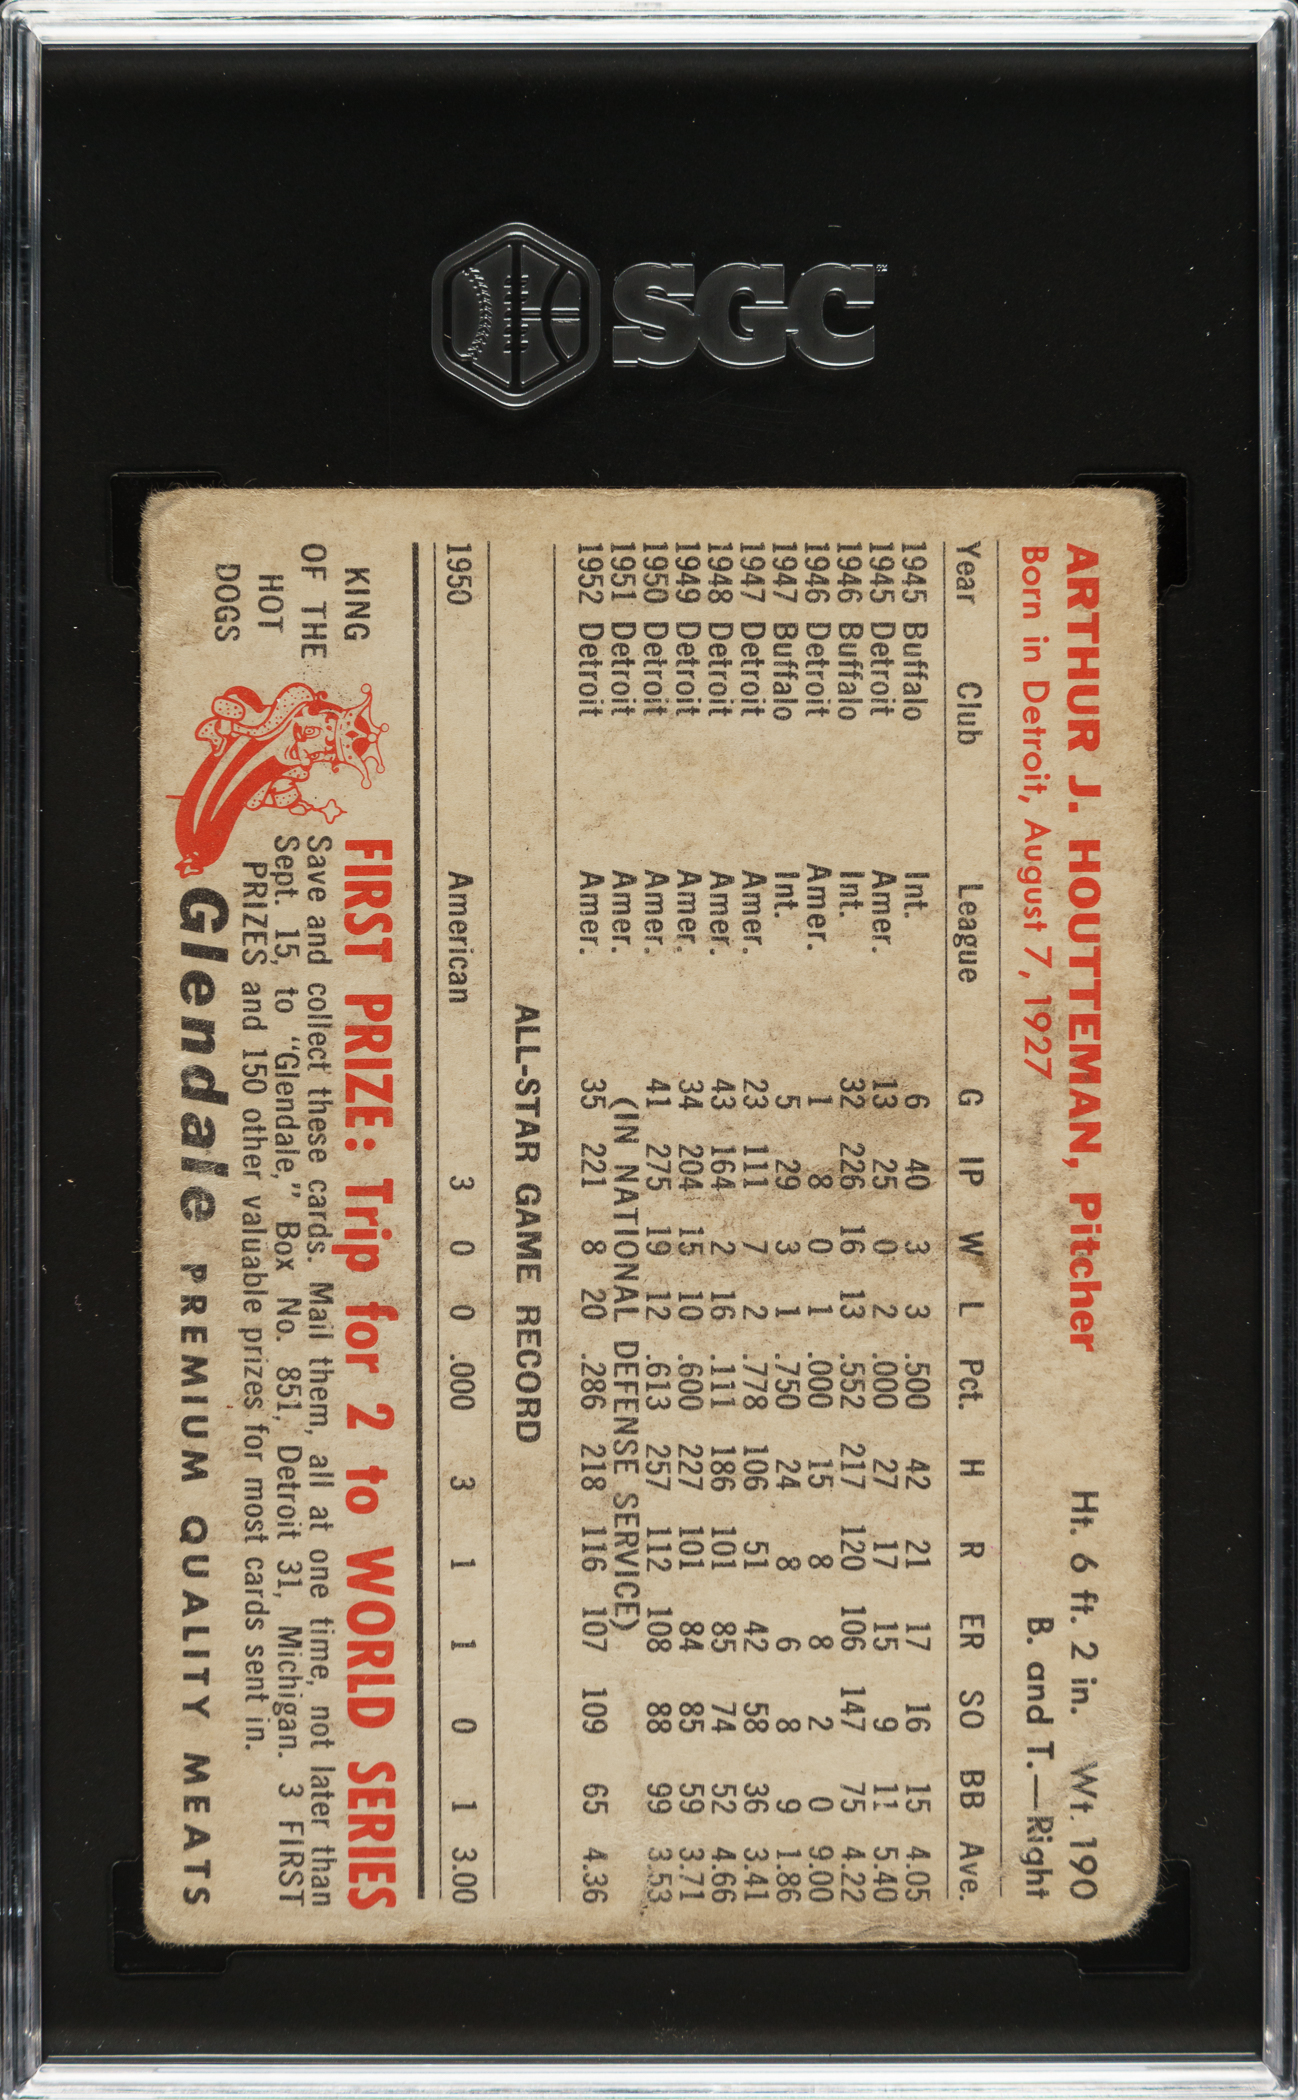 SGC
ARTHUR J. HOUTTEMAN, Pitcher Ht. 6 ft. 2 in. Wt. 190
Born in Detroit, August 7, 1927 B. and T.—Right
Year Club League G IP W L Pct. H R ER SO BB Ave.
1945 Buffalo Int. 6 40 3 3 .500 42 21 17 16 15 4.05
1945 Detroit Amer. 13 25 0 2 .000 27 17 15 9 11 5.40
1946 Buffalo Int. 32 226 16 13 .552 217 120 106 147 75 4.22
1946 Detroit Amer. 1 8 0 1 .000 15 8 8 2 0 9.00
1947 Buffalo Int. 5 29 3 1 .750 24 8 6 8 9 1.86
1947 Detroit Amer. 23 111 7 2 .778 106 51 42 58 36 3.41
1948 Detroit Amer. 43 164 2 16 .111 186 101 85 74 52 4.66
1949 Detroit Amer. 34 204 15 10 .600 227 101 84 85 59 3.71
1950 Detroit Amer. 41 275 19 12 .613 257 112 108 88 99 3.53
1951 Detroit Amer. (IN NATIONAL DEFENSE SERVICE)
1952 Detroit Amer. 35 221 8 20 .286 218 116 107 109 65 4.36
ALL-STAR GAME RECORD
1950 American 3 0 0 .000 3 1 1 0 1 3.00
KING
OF THE
HOT
DOGS
FIRST PRIZE: Trip for 2 to WORLD SERIES
Save and collect these cards. Mail them, all at one time, not later than
Sept. 15, to "Glendale," Box No. 851, Detroit 31, Michigan. 3 FIRST
PRIZES and 150 other valuable prizes for most cards sent in.
Glendale PREMIUM QUALITY MEATS